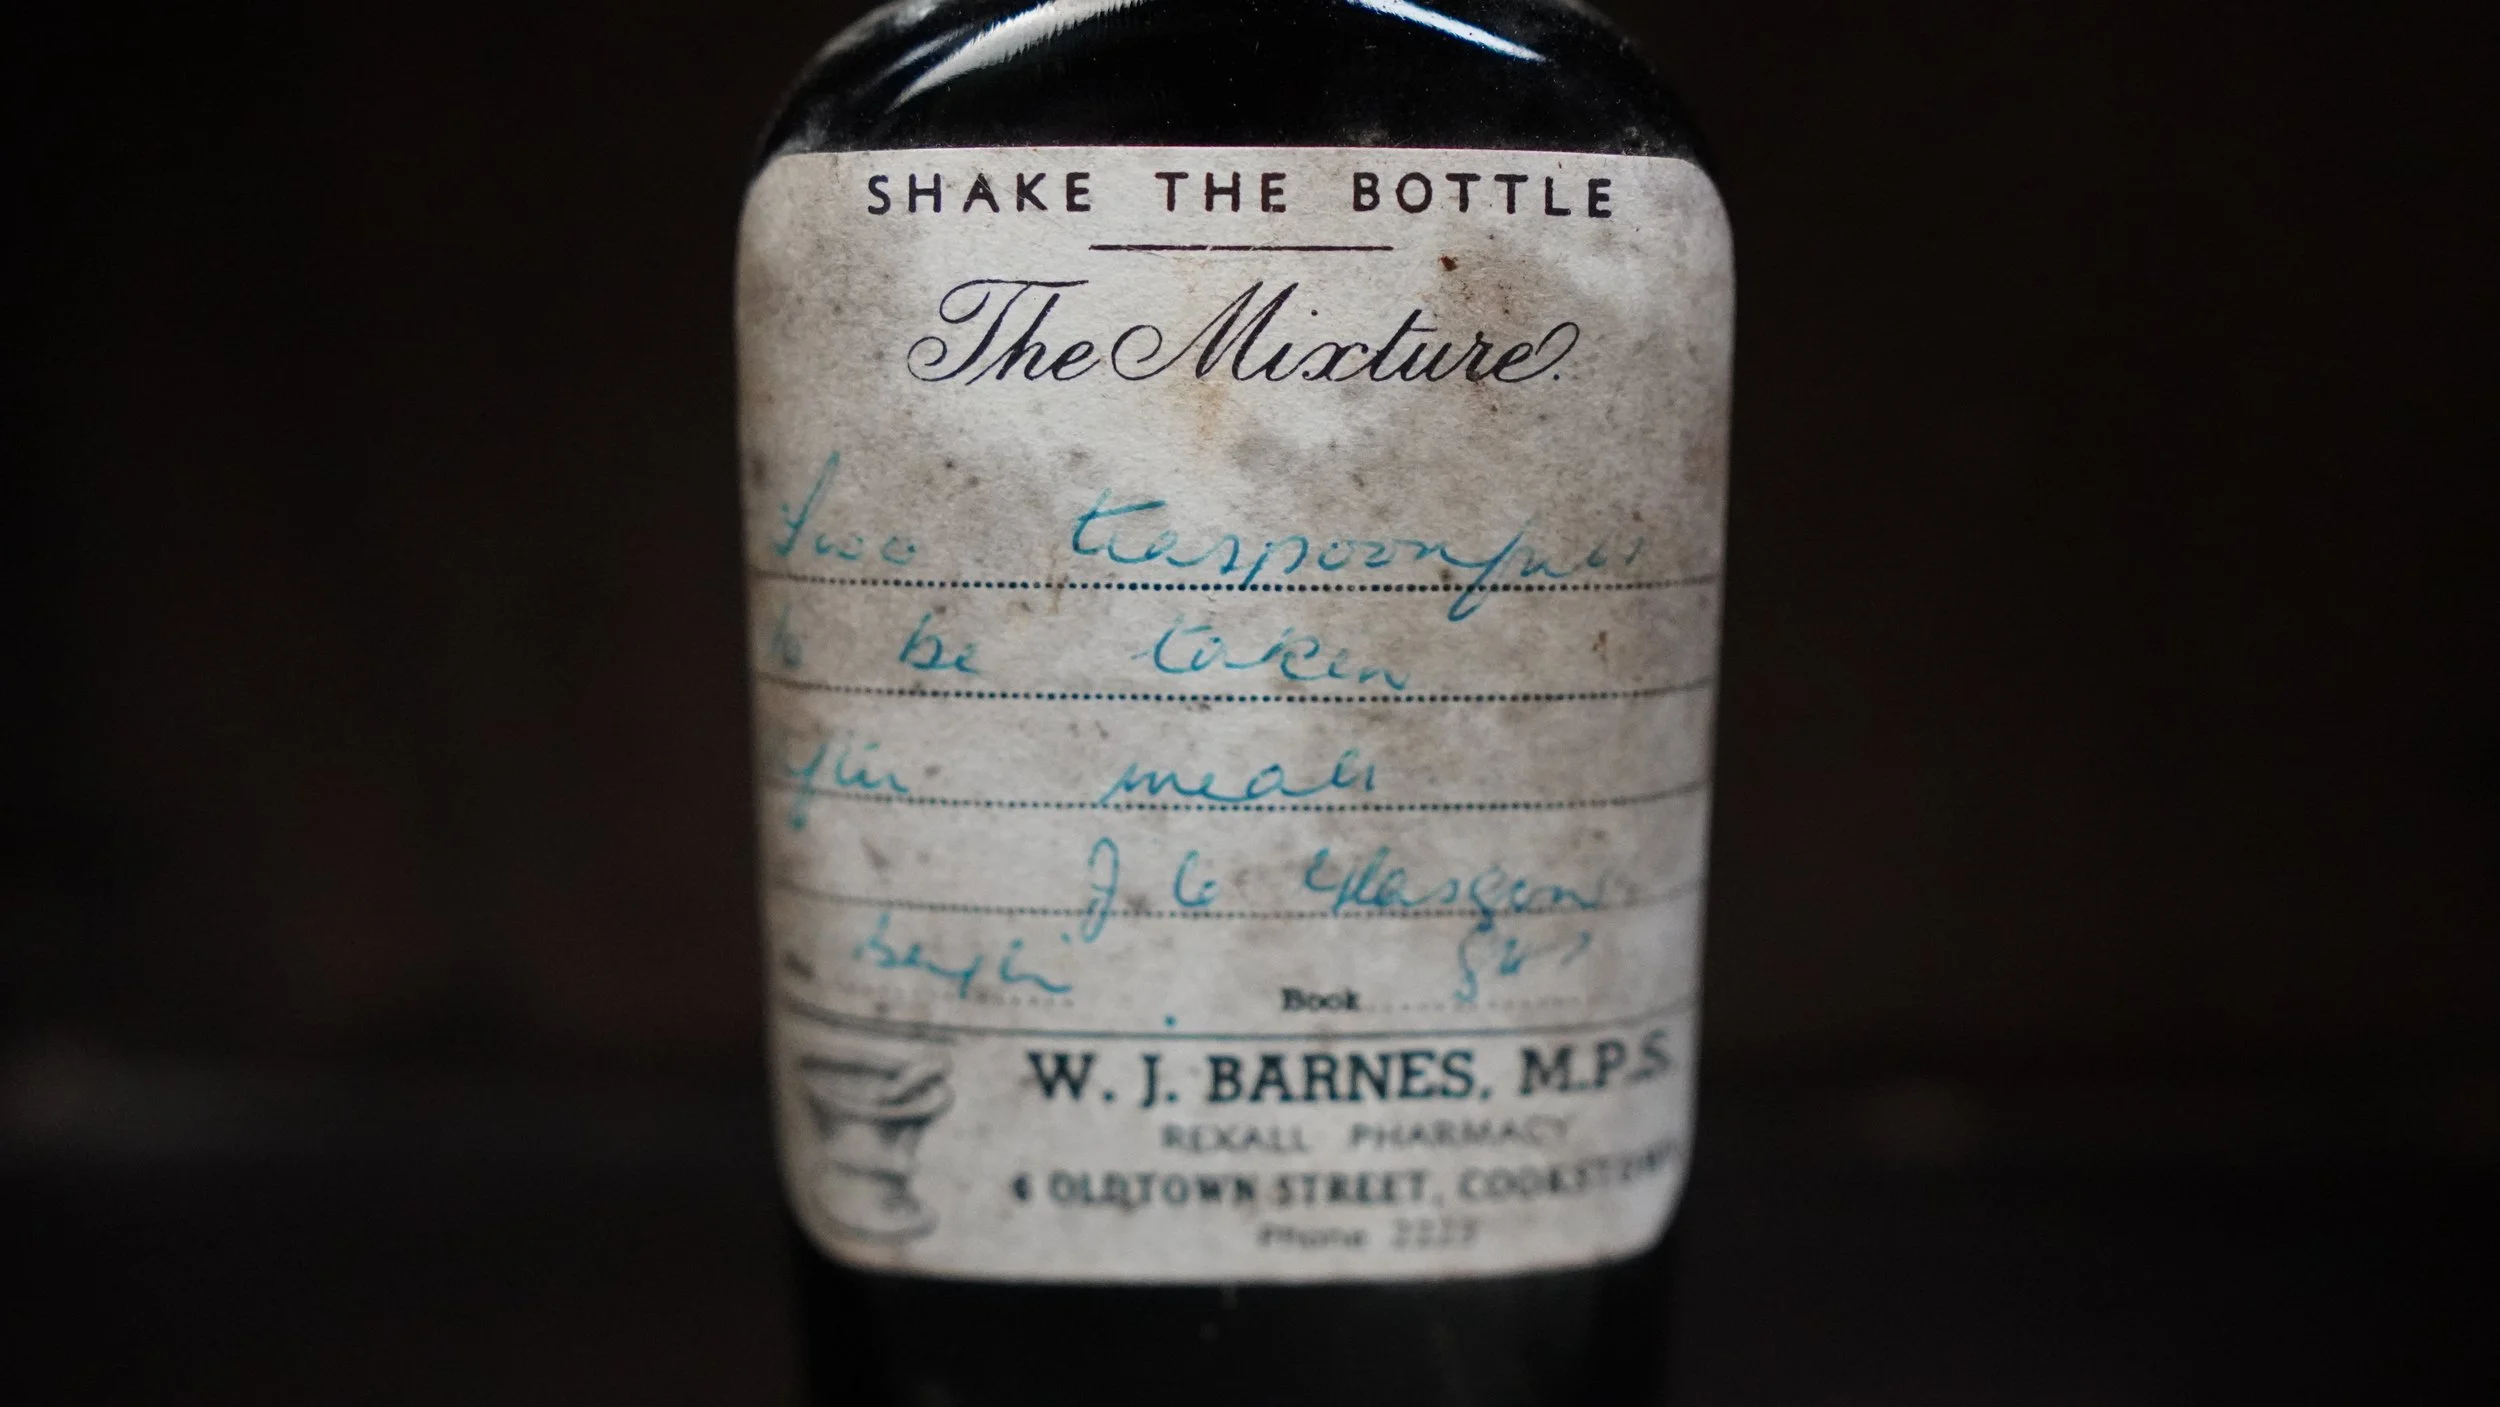 SHAKE THE BOTTLE
The Mixture.
Two teaspoonfuls
to be taken
after meals
J
Book
W. J. BARNES, M.P.S.
REXALL PHARMACY
OLDTOWN STREET, COOKSTOWN
Phone